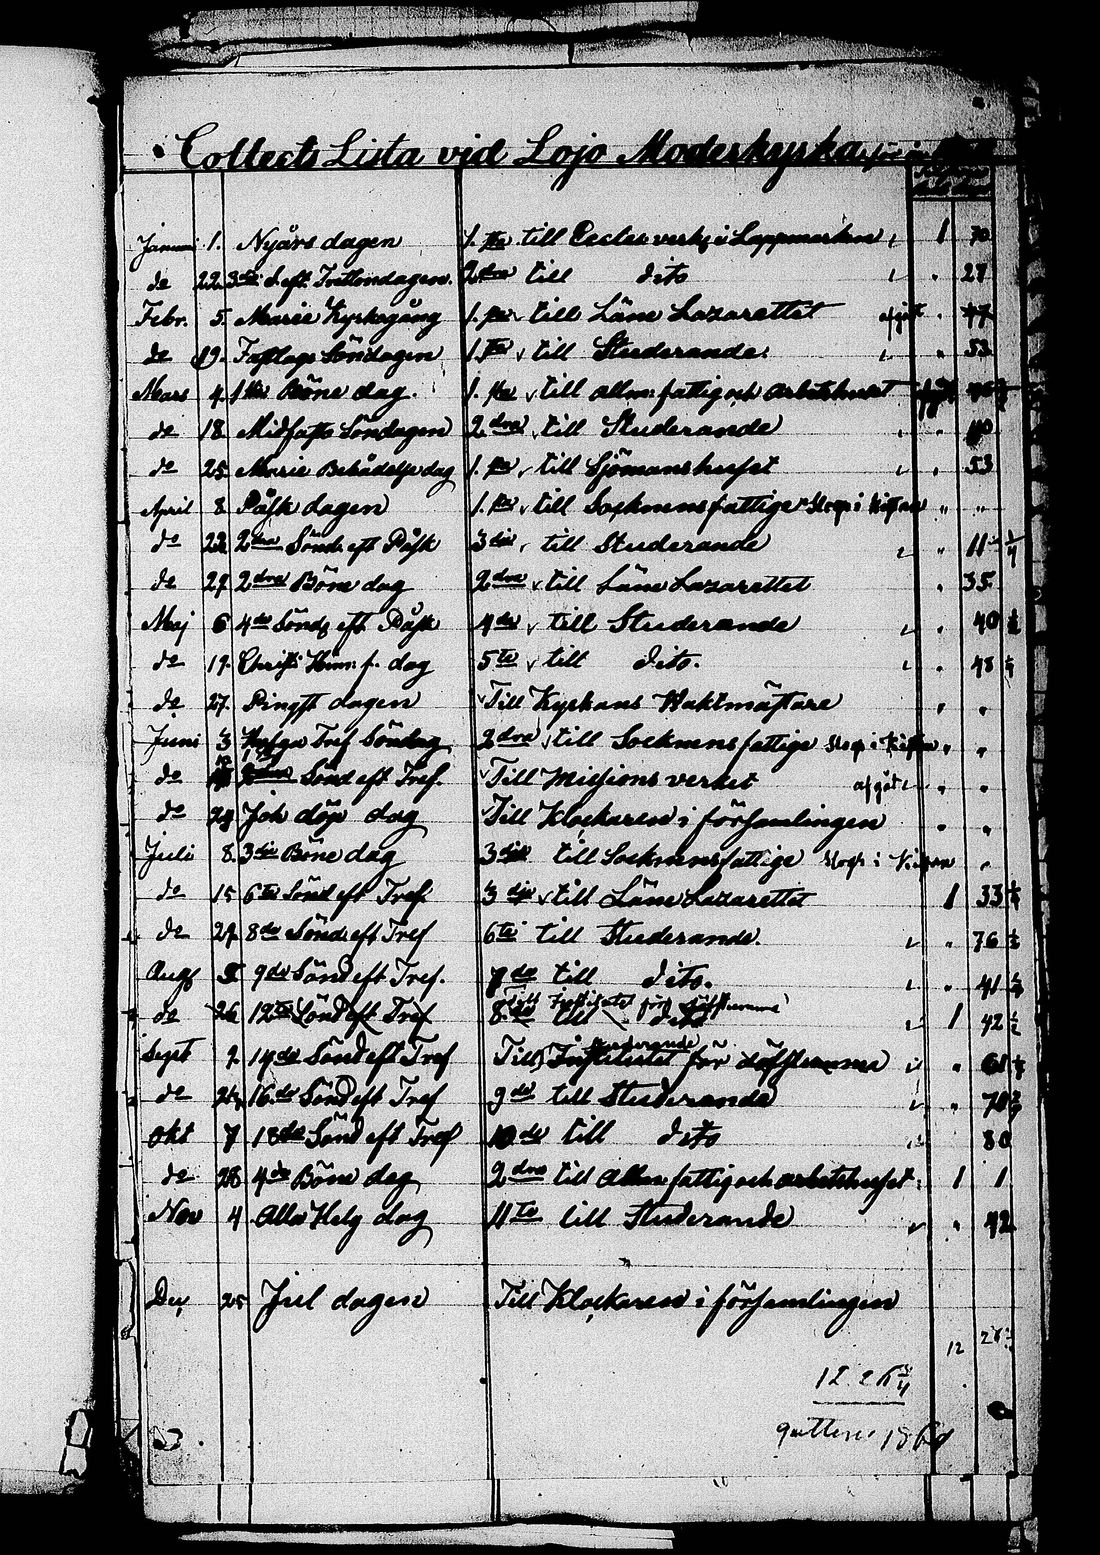 Collects Lista vid Lojo Moderkyrka för år
Januari 1. Nyårs dagen 1.sta till Eccles. verk. i Lappmarken 1 70
de 22. 3die S. eft. Trettondagen. 2dra till dito " 27
Febr. 5. Marie Kyrkogång 1.sta till Läns Lazarettet afgått " 77
de 19. Fastlags Söndagen 1.sta till Studerande. " 53
Mars 4. 1sta Böne dag. 1.sta till allm. fattig och arbetshuset
de 18. Midfasto Söndagen 2dra till Studerande " 40
de 25. Marie Bebådelse dag 1.sta till Sjömanshuset " 53
April 8. Påsk dagen 1.sta till Socknens fattige slogs i Kistan " "
de 22. 2dra Sönd. eft Påsk 3die till Studerande " 11 1/4
de 27. 2dra Böne dag 2dra till Läns Lazarettet " 35
Maj 6 4de Sönd. eft. Påsk 4de till Studerande " 40 1/2
de 17. Christi Him. f. dag 5te till dito. " 48
de 27. Pingst dagen Till Kyrkans Waktmästare " "
Juni 3 Helga Tref Söndag 2dra till Socknens fattige slogs i Kistan " "
de Sönd eft Tref. Till Missions verket afgått " "
de 24 Joh döp dag Till Klockaren i församlingen " "
Juli 8. 3die Böne dag 3die till Socknens fattige slogs i Kistan "
de 15 6te Sönd eft Tref 3die till Läns Lazarettet 1 33
de 29. 8de Sönd eft Tref 6te till Studerande. " 76 1/2
Aug 9de Sönd eft Tref. 7de till dito. " 41
till Institutet för döfstumma
de 26 12te Sönd eft Tref 8de till dito 1 42 1/2
Studerande
Sept 2. 14de Sönd eft Tref Till Institutet för döfstumma " 61
de 16.de Sönd eft Tref 9de till Studerande " 70
Okt 7 18de Sönd eft Tref 10de till dito 80
de 28 4de Böne dag 2dra till Allm fattig och arbetshuset 1 1
Nov 4 Alla Helg dag 11te till Studerande " 42
Dec 25 Jul dagen Till Klockaren i församlingen
12 26
12. 26 3/4